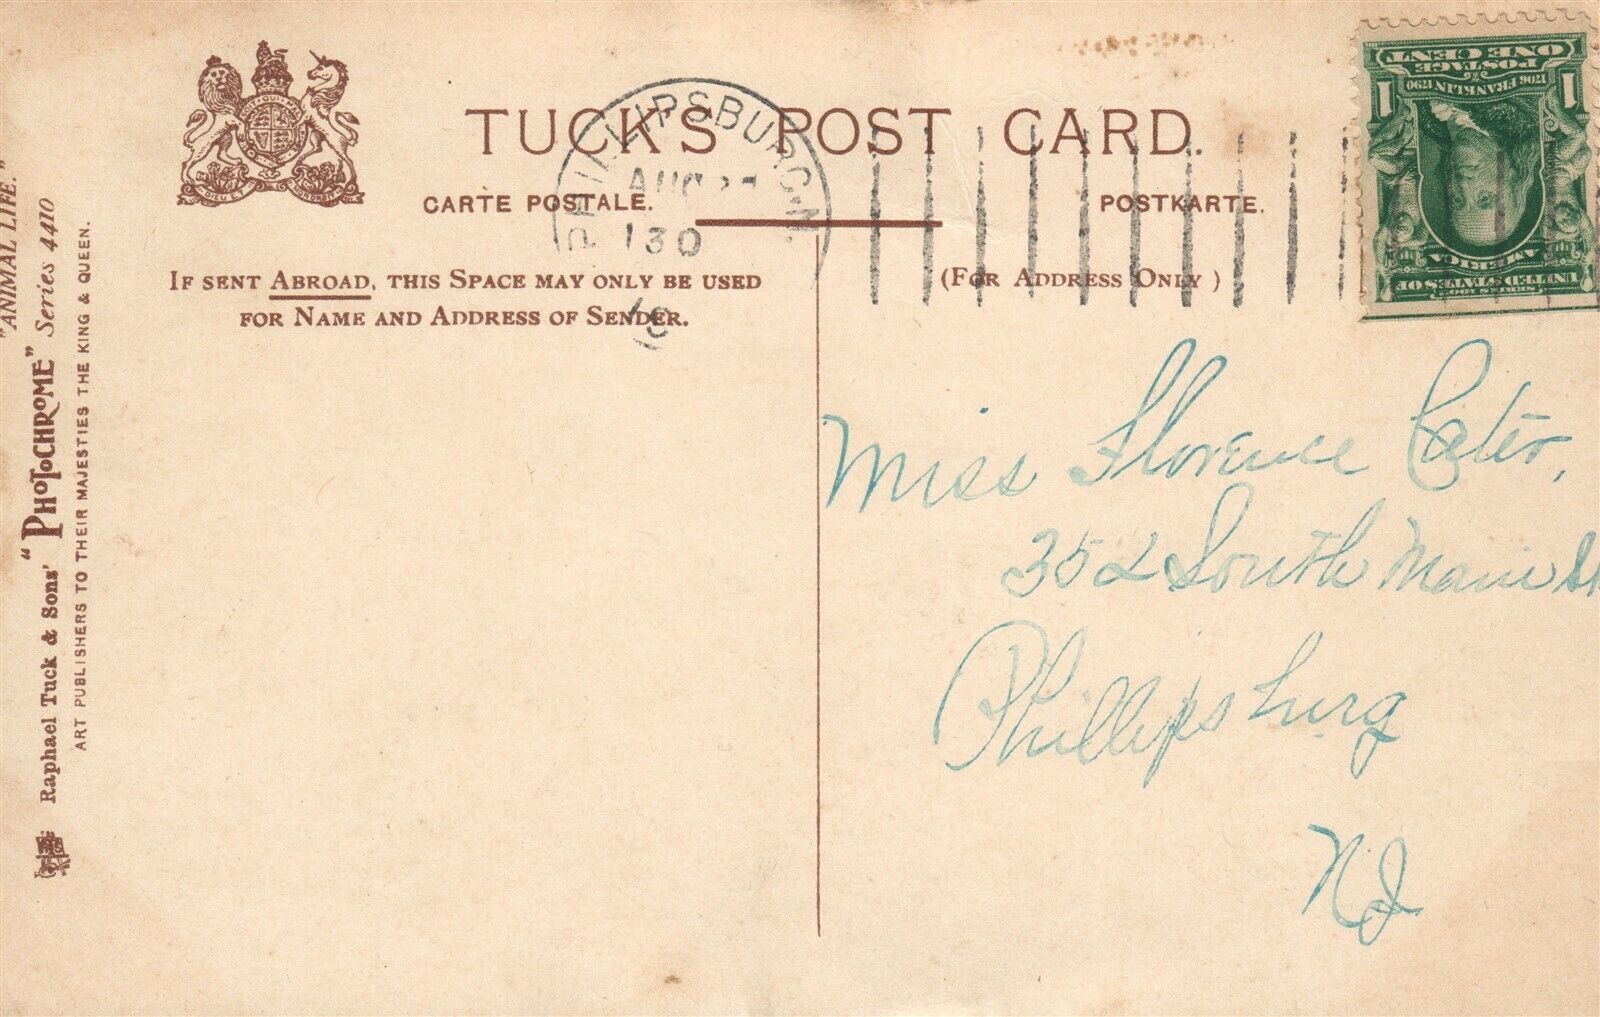 TUCK'S POST CARD.
CARTE POSTALE.
POSTKARTE.
IF SENT ABROAD, THIS SPACE MAY ONLY BE USED
FOR NAME AND ADDRESS OF SENDER.
(FOR ADDRESS ONLY)
"ANIMAL LIFE."
Raphael Tuck & Sons' "PHOTOCHROME" Series 4410
ART PUBLISHERS TO THEIR MAJESTIES THE KING & QUEEN.
PHILLIPSBURG. N.
AUG
130
POSTAGE
ONE CENT
1706 FRANKLIN 1790
1 1
SERIES 1902
UNITED STATES OF
AMERICA
Miss Florence Cater,
352 South Main St
Phillipsburg
NJ